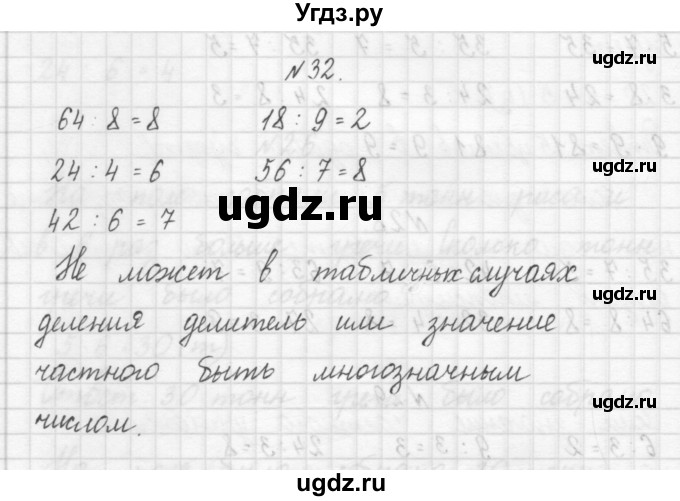 Угдз.ру
ugdz.ru
ugdz.ru
№32.
64 : 8 = 8   18 : 9 = 2
ugdz.ru
24 : 4 = 6   56 : 7 = 8
ugdz.ru
42 : 6 = 7
Не может в табличных случаях
ugdz.ru
деления делитель или значение
частного быть многозначным
ugdz.ru
числом.
ugdz.ru
ugdz.ru